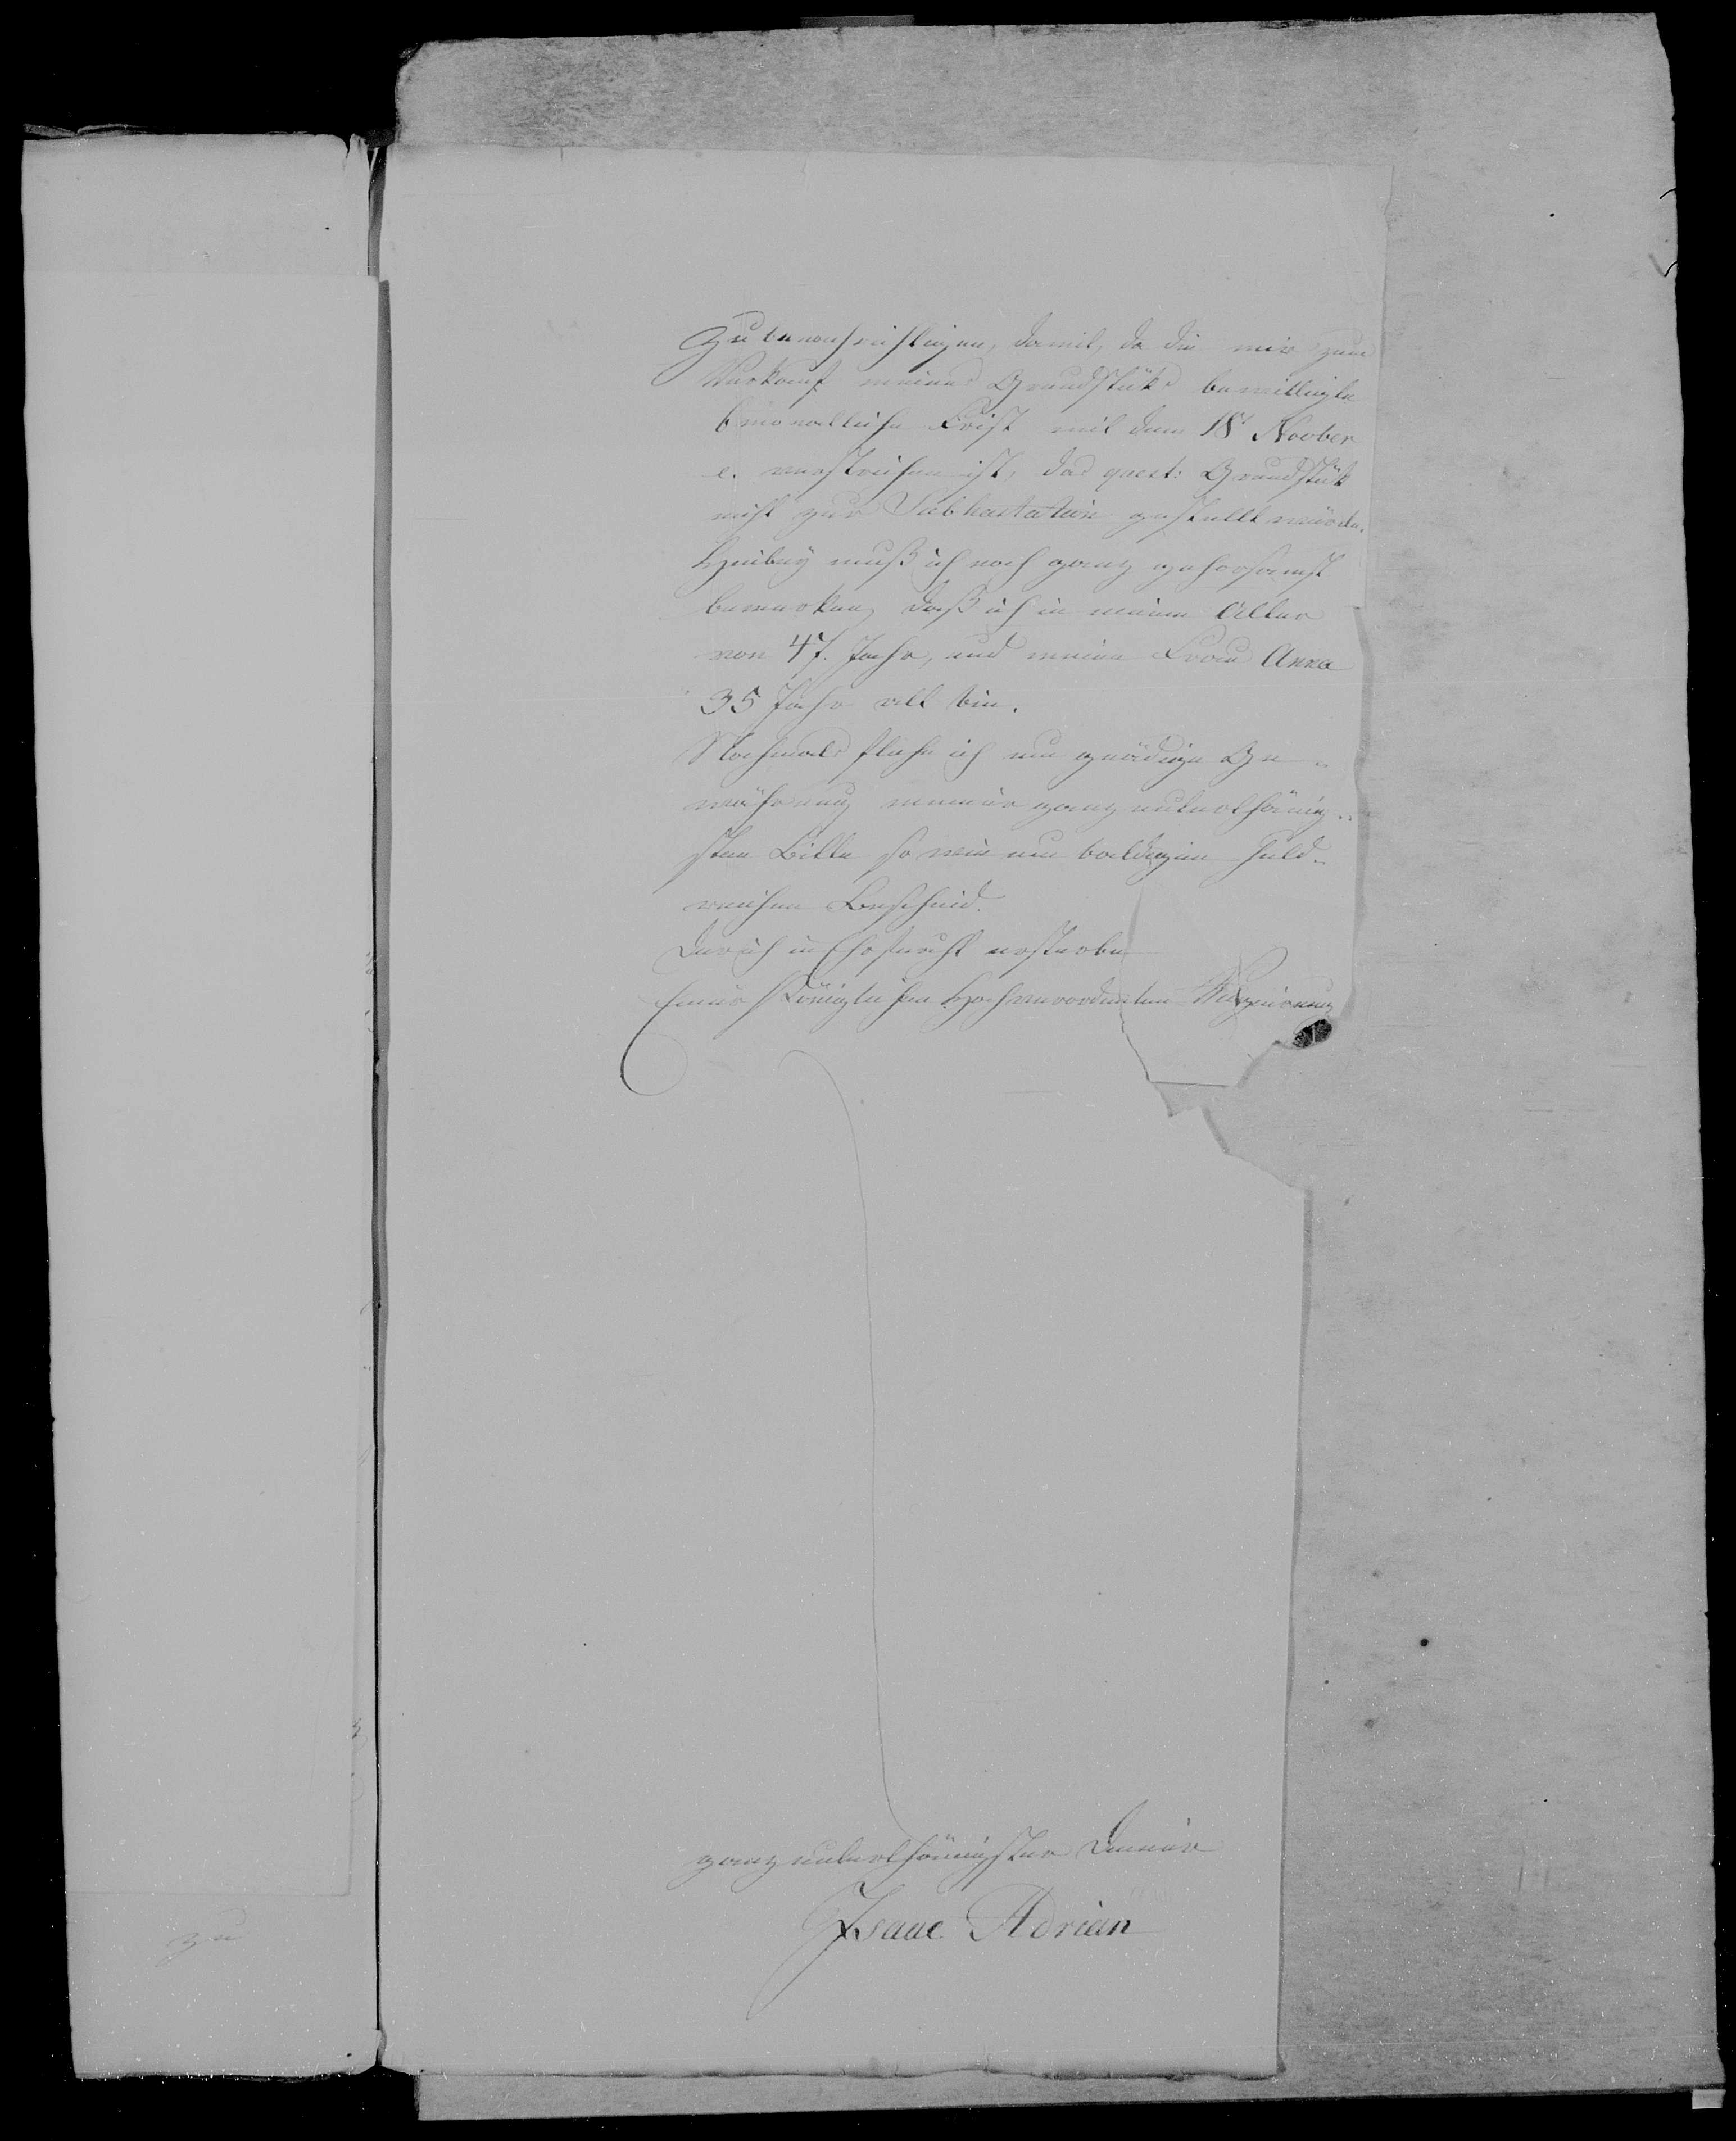 zu benachrichtigen, damit, da die mir zum
Verkauf meines Grundstüks bewilligte
6 monatliche Frist mit dem 18t Novber
c. verstrichen ist, das quest: Grundstük
nicht zur Subhastation gestellt würde.
Hierbey muß ich noch ganz gehorsamst
bemerken, daß ich in meinem Alter
von 47. Jahr, und meine Frau Anna
35 Jahr alt bin.
Nochmals flehe ich um gnädige Ge-
währung meiner ganz unterthänig-
sten Bitte so wie um baldigen huld-
reichen Bescheid.
Der ich in Ehrfurcht ersterbe
Einer Königlichen Hochverordneten Regierung
ganz unterthänigster Diener
Isaac Adrian
zu